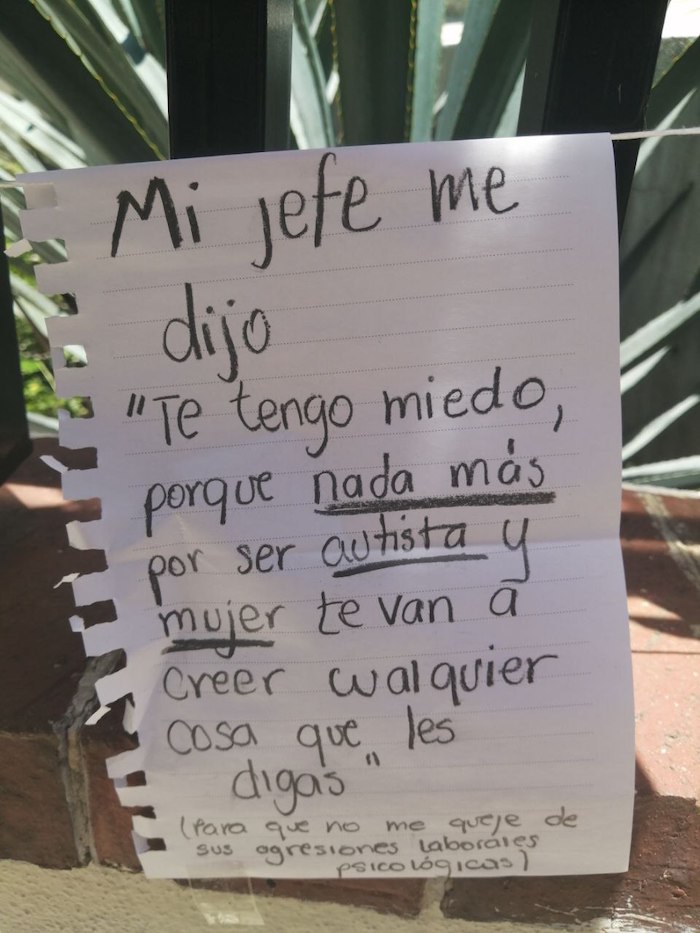 Mi jefe me
dijo
"Te tengo miedo,
porque nada más
por ser autista y
mujer te van a
creer cualquier
cosa que les
digas"
(Para que no me queje de
sus agresiones laborales
psicológicas)